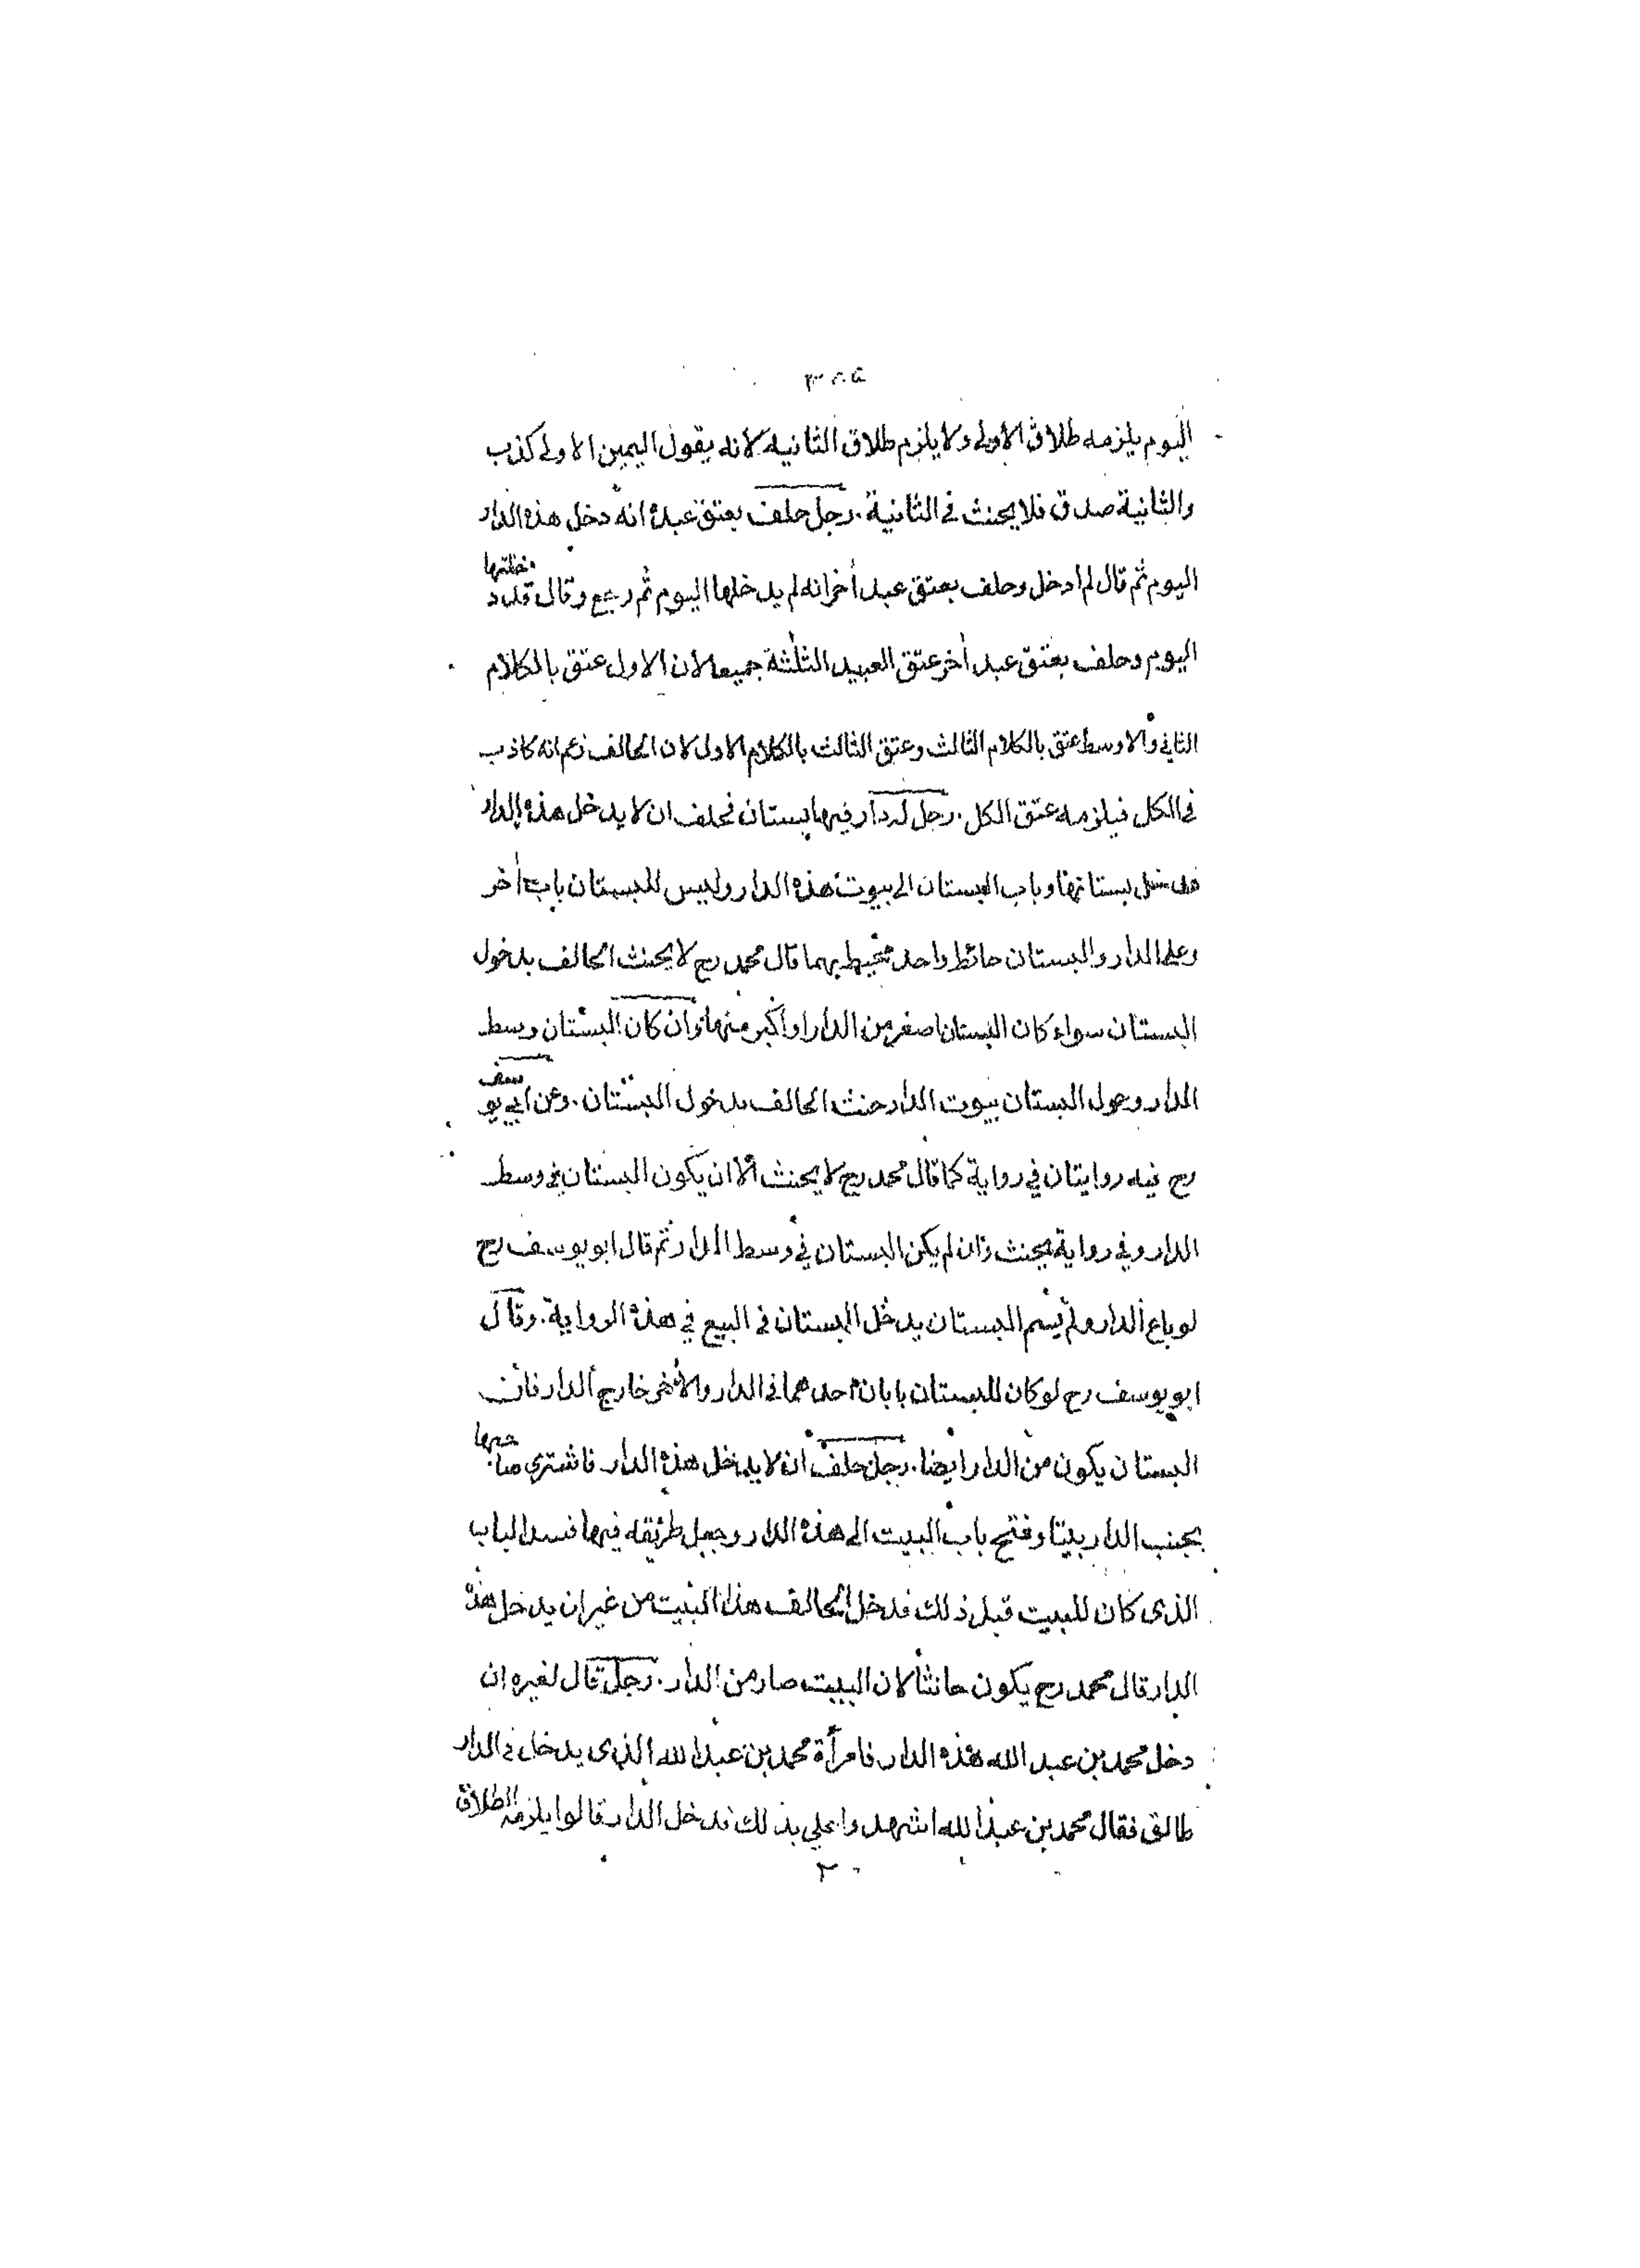 ٣٨٥
اليوم يلزمه طلاق الاولى ولا يلزم طلاق الثانية لانه يقول اليمين الاولى كذب
والثانية صدق فلا يحنث في الثانية. رجل حلف بعتق عبده انه دخل هذه الدار
اليوم ثم قال لم ادخل وحلف بعتق عبد أخر انه لم يدخلها اليوم ثم رجع وقال قد دخلتها
اليوم وحلف بعتق عبد أخر عتق العبيد الثلثة جميعا لان الاول عتق بالكلام
الثاني والاوسط عتق بالكلام الثالث وعتق الثالث بالكلام الاول لان الحالف زعم انه كاذب
في الكل فيلزمه عتق الكل. رجل له دار فيها بستان فحلف ان لا يدخل هذه الدار
فدخل بستانها وباب البستان الى بيوت هذه الدار وليس للبستان باب أخر
وعلى الدار والبستان حائط واحد محيط بهما قال محمد رح لا يحنث الحالف بدخول
البستان سواء كان البستان اصغر من الدار او اكبر منها وان كان البستان وسط
الدار وحول البستان بيوت الدار حنث الحالف بدخول البستان. وعن ابي يوسف
رح فيه روايتان في رواية كما قال محمد رح لا يحنث الا ان يكون البستان في وسط
الدار وفي رواية يحنث وان لم يكن البستان في وسط الدار ثم قال ابو يوسف رح
لو باع الدار ولم يسم البستان يدخل البستان في البيع في هذه الرواية. وقال
ابو يوسف رح لو كان للبستان بابان احدهما في الدار والأخر خارج الدار فان
البستان يكون من الدار ايضا. رجل حلف ان لا يدخل هذه الدار فاشترى صاحبها
بجنب الدار بيتا وفتح باب البيت الى هذه الدار وجعل طريقه فيها فسد الباب
الذى كان للبيت قبل ذلك فدخل الحالف هذا البيت من غير ان يدخل هذه
الدار قال محمد رح يكون حانثا لان البيت صار من الدار. رجل قال لغيره ان
دخل محمد بن عبد الله هذه الدار فامرأة محمد بن عبد الله الذى يدخل في الدار
طالق فقال محمد بن عبد الله اشهدوا على بذلك فدخل الدار قالوا يلزمه الطلاق